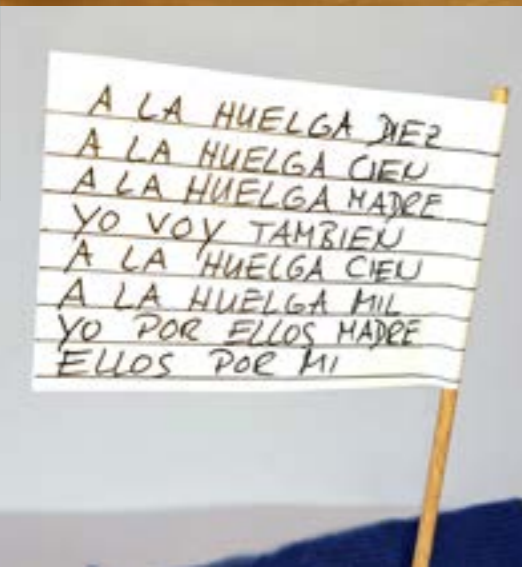 A LA HUELGA DIEZ
A LA HUELGA CIEN
A LA HUELGA MADRE
YO VOY TAMBIEN
A LA HUELGA CIEN
A LA HUELGA MIL
YO POR ELLOS MADRE
ELLOS POR MI